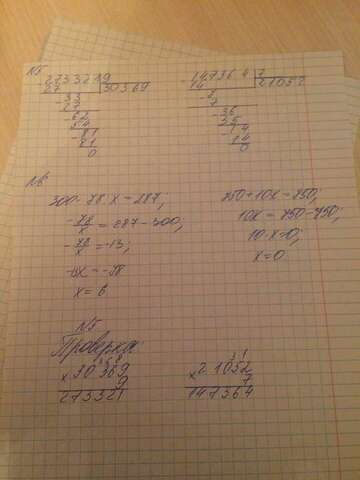 N5
273321 9
27 30369
-33
27
-62
54
-81
81
0
147364 7
14 21052
-7
7
-36
35
-14
14
0
N6
300-78:x=287;
-78/x=287-300;
-78/x=-13;
-13x=-78
x=6
750+10x=750;
10x=750-750;
10·x=0;
x=0
N5
Проверка:
×30369
9
273321
×21052
7
147364